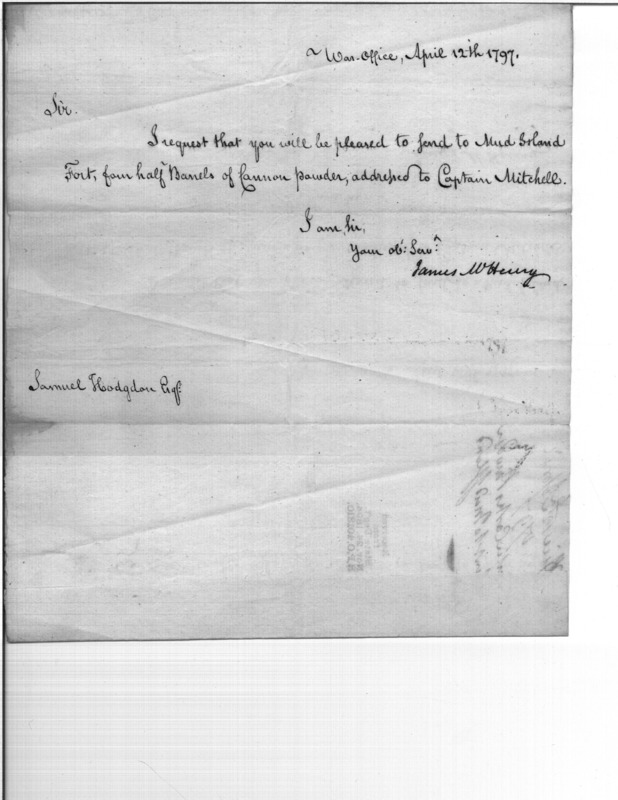 War-Office, April 12th 1797.
Sir.
I request that you will be pleased to send to Mud Island
Fort, four half Barrels of Cannon powder, addressed to Captain Mitchell.
I am, Sir,
Your obt: Servt:
James McHenry
Samuel Hodgdon Esqr.